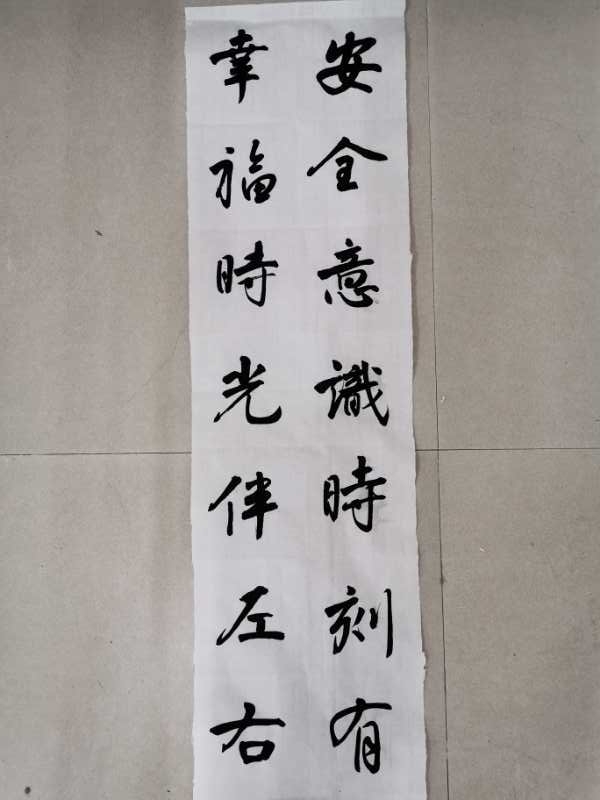 安全意識時刻有
幸福時光伴左右